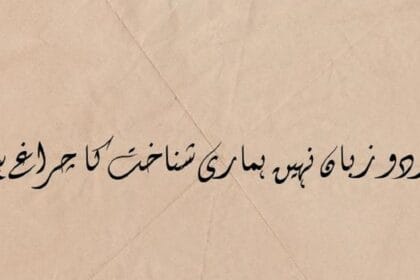 ردو زبان نہیں ہماری شناخت کا چراغ ہے